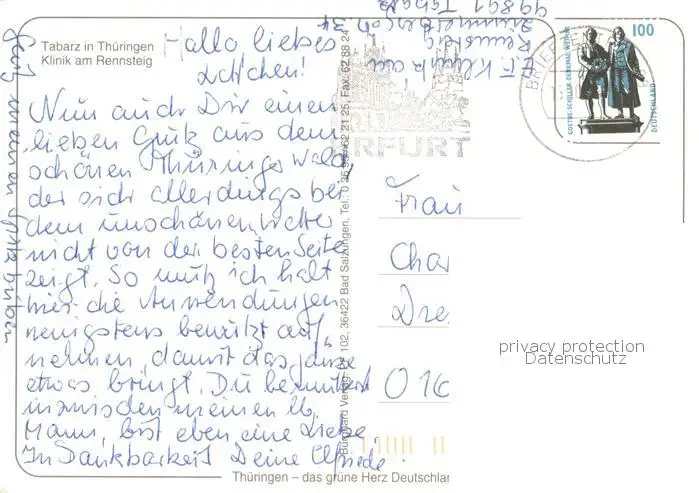 Tabarz in Thüringen
Klinik am Rennsteig
Hallo liebes
Lottchen!
Nun auch Dir einen
lieben Gruß aus dem
schönen Thüringer Wald,
der sich allerdings bei
dem unschönen Wetter
nicht von der besten Seite
zeigt. So muß ich halt
hier die Anwendungen
wenigstens bewußt auf„
nehmen, damit das ganze
etwas bringt. Du bemutterst
inzwischen meinen lb.
Mann, bist eben eine Liebe.
In Dankbarkeit Deine
meinen Spitzbuben
E. F. Klinik am
Rennsteig
Zimmerbergstr. 34
99891 Tabarz
Burghard Verlag, PF 102, 36422 Bad Salzungen, Tel.: 0 36 95/62 21 25, Fax: 62 88 24
ERFURT
BRIEFZE
100
GOETHE-SCHILLER-DENKMAL WEIMAR
DEUTSCHLAND
Frau
Char
Dre
016
privacy protection
Datenschutz
Thüringen – das grüne Herz Deutschlan